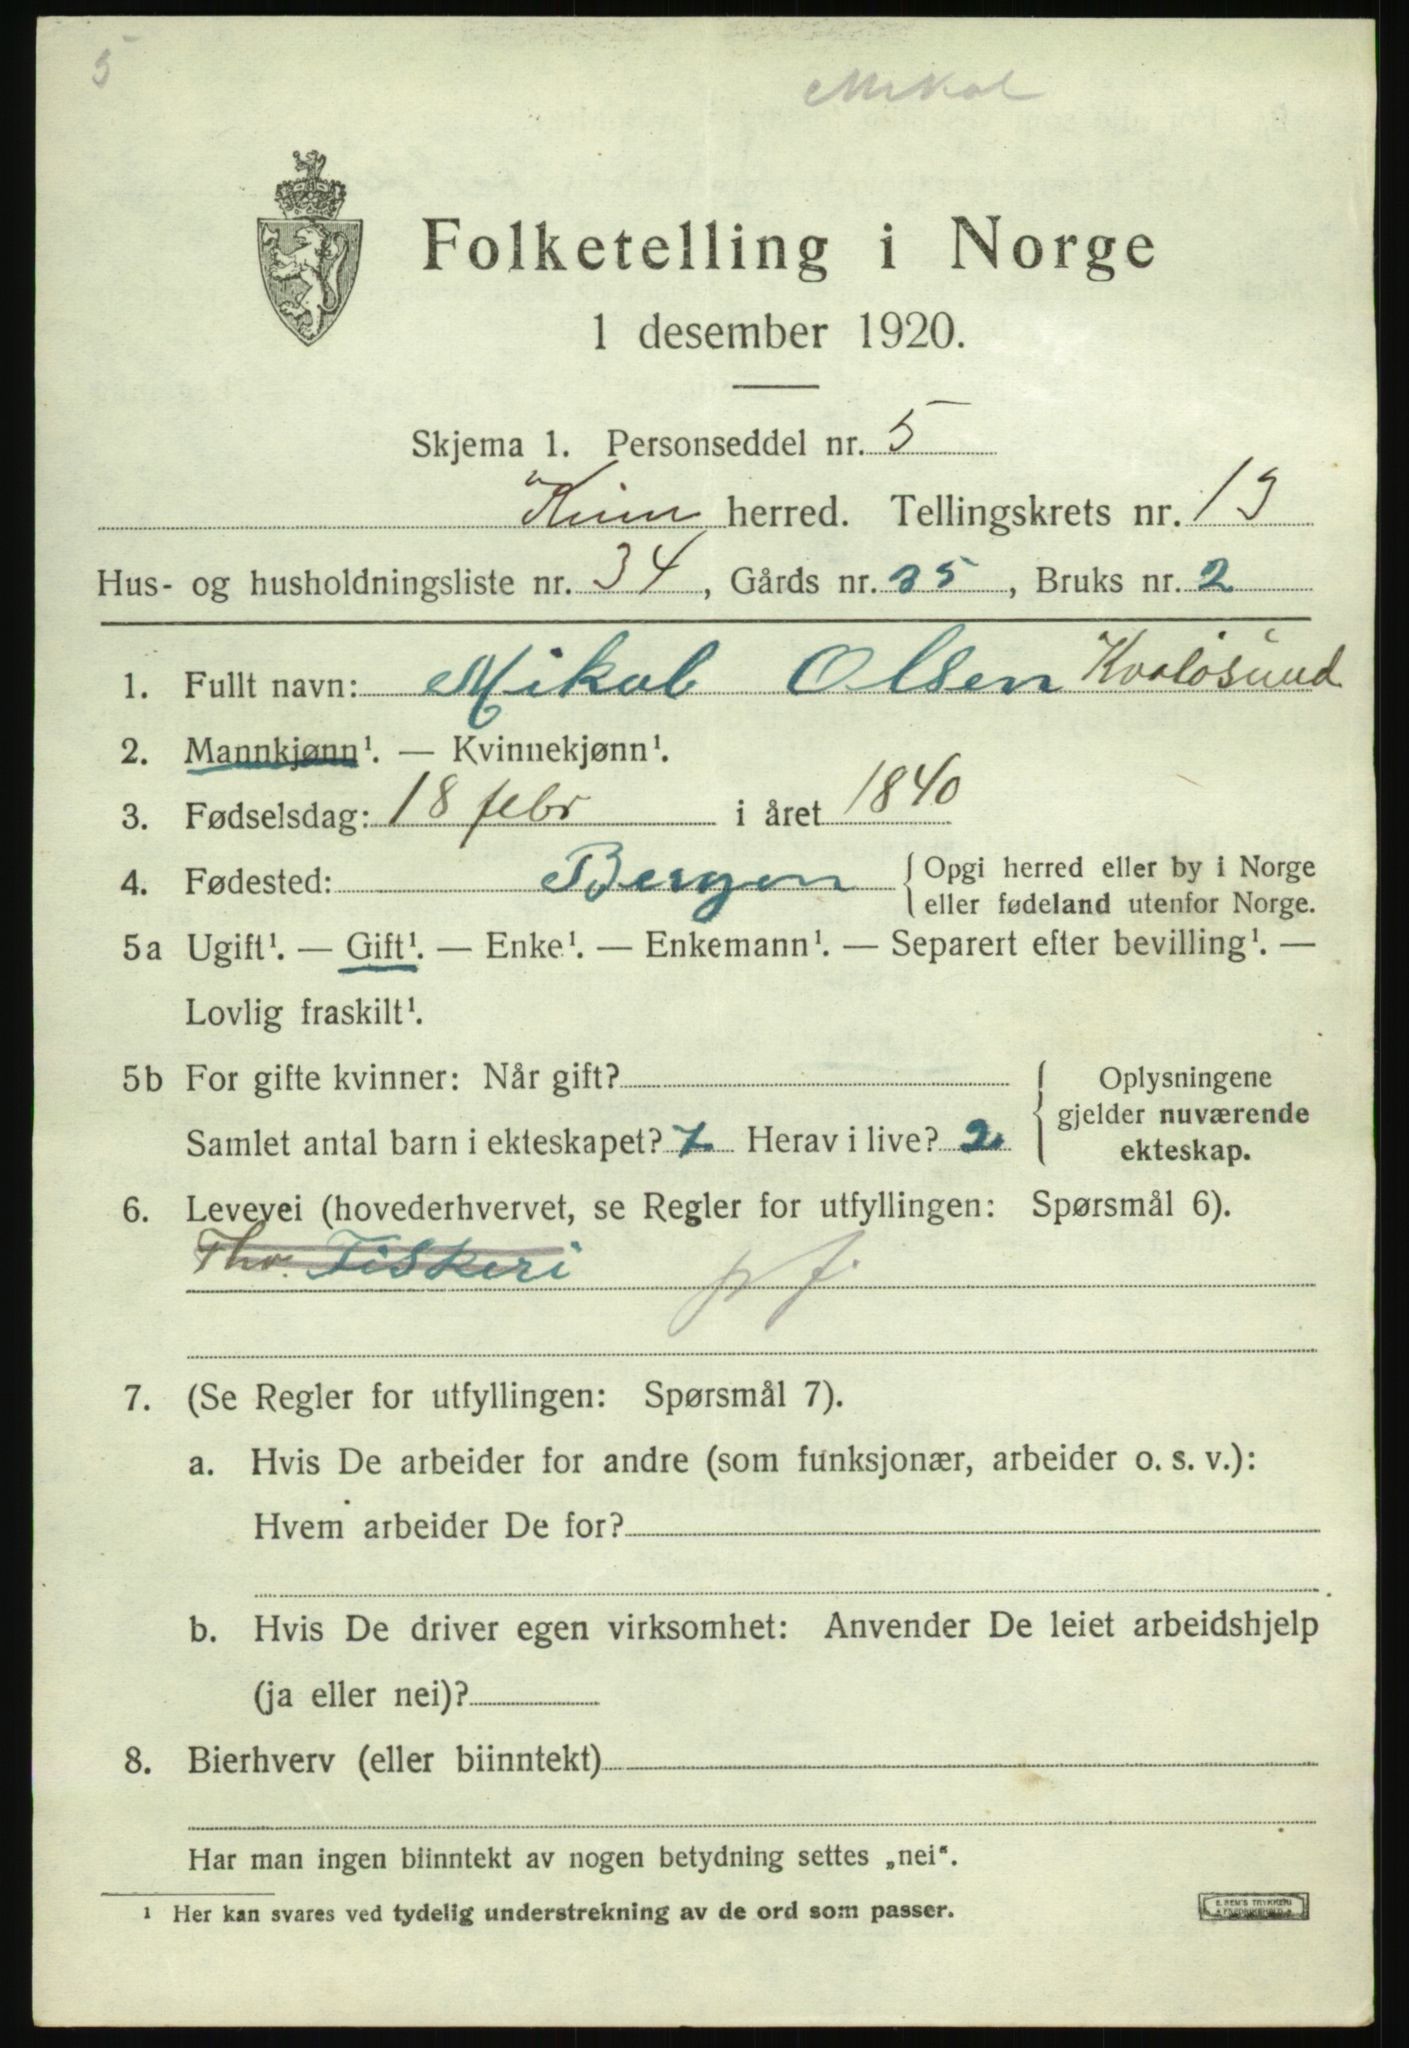 5
Mikal
Folketelling i Norge
1 desember 1920.
Skjema 1. Personseddel nr. 5
Kinn herred. Tellingskrets nr. 13
Hus- og husholdningsliste nr. 34, Gårds nr. 35, Bruks nr. 2
1. Fullt navn: Mikal Olsen Kvaløsund
2. Mannkjønn¹. — Kvinnekjønn¹.
3. Fødselsdag: 18 febr i året 1840
4. Fødested: Bergen { Opgi herred eller by i Norge
eller fødeland utenfor Norge.
5a Ugift¹. — Gift¹. — Enke¹. — Enkemann¹. — Separert efter bevilling¹. —
Lovlig fraskilt¹.
5b For gifte kvinner: Når gift? { Oplysningene
gjelder nuværende
Samlet antal barn i ekteskapet? 7 Herav i live? 2
ekteskap.
6. Levevei (hovederhvervet, se Regler for utfyllingen: Spørsmål 6).
Fhv. Fiskeri
7. (Se Regler for utfyllingen: Spørsmål 7).
a. Hvis De arbeider for andre (som funksjonær, arbeider o. s. v.):
Hvem arbeider De for?
b. Hvis De driver egen virksomhet: Anvender De leiet arbeidshjelp
(ja eller nei)?
8. Bierhverv (eller biinntekt)
Har man ingen biinntekt av nogen betydning settes „nei“.
¹ Her kan svares ved tydelig understrekning av de ord som passer.